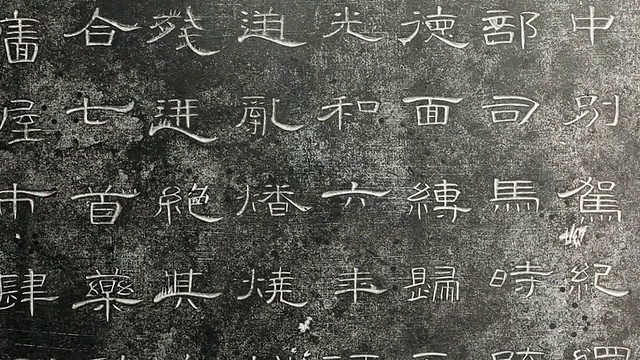 中別駕紀
部司馬時
德面縛歸
光和六年
逆亂燔燒
殘迸絕其
合七首藥
廧屋市肆